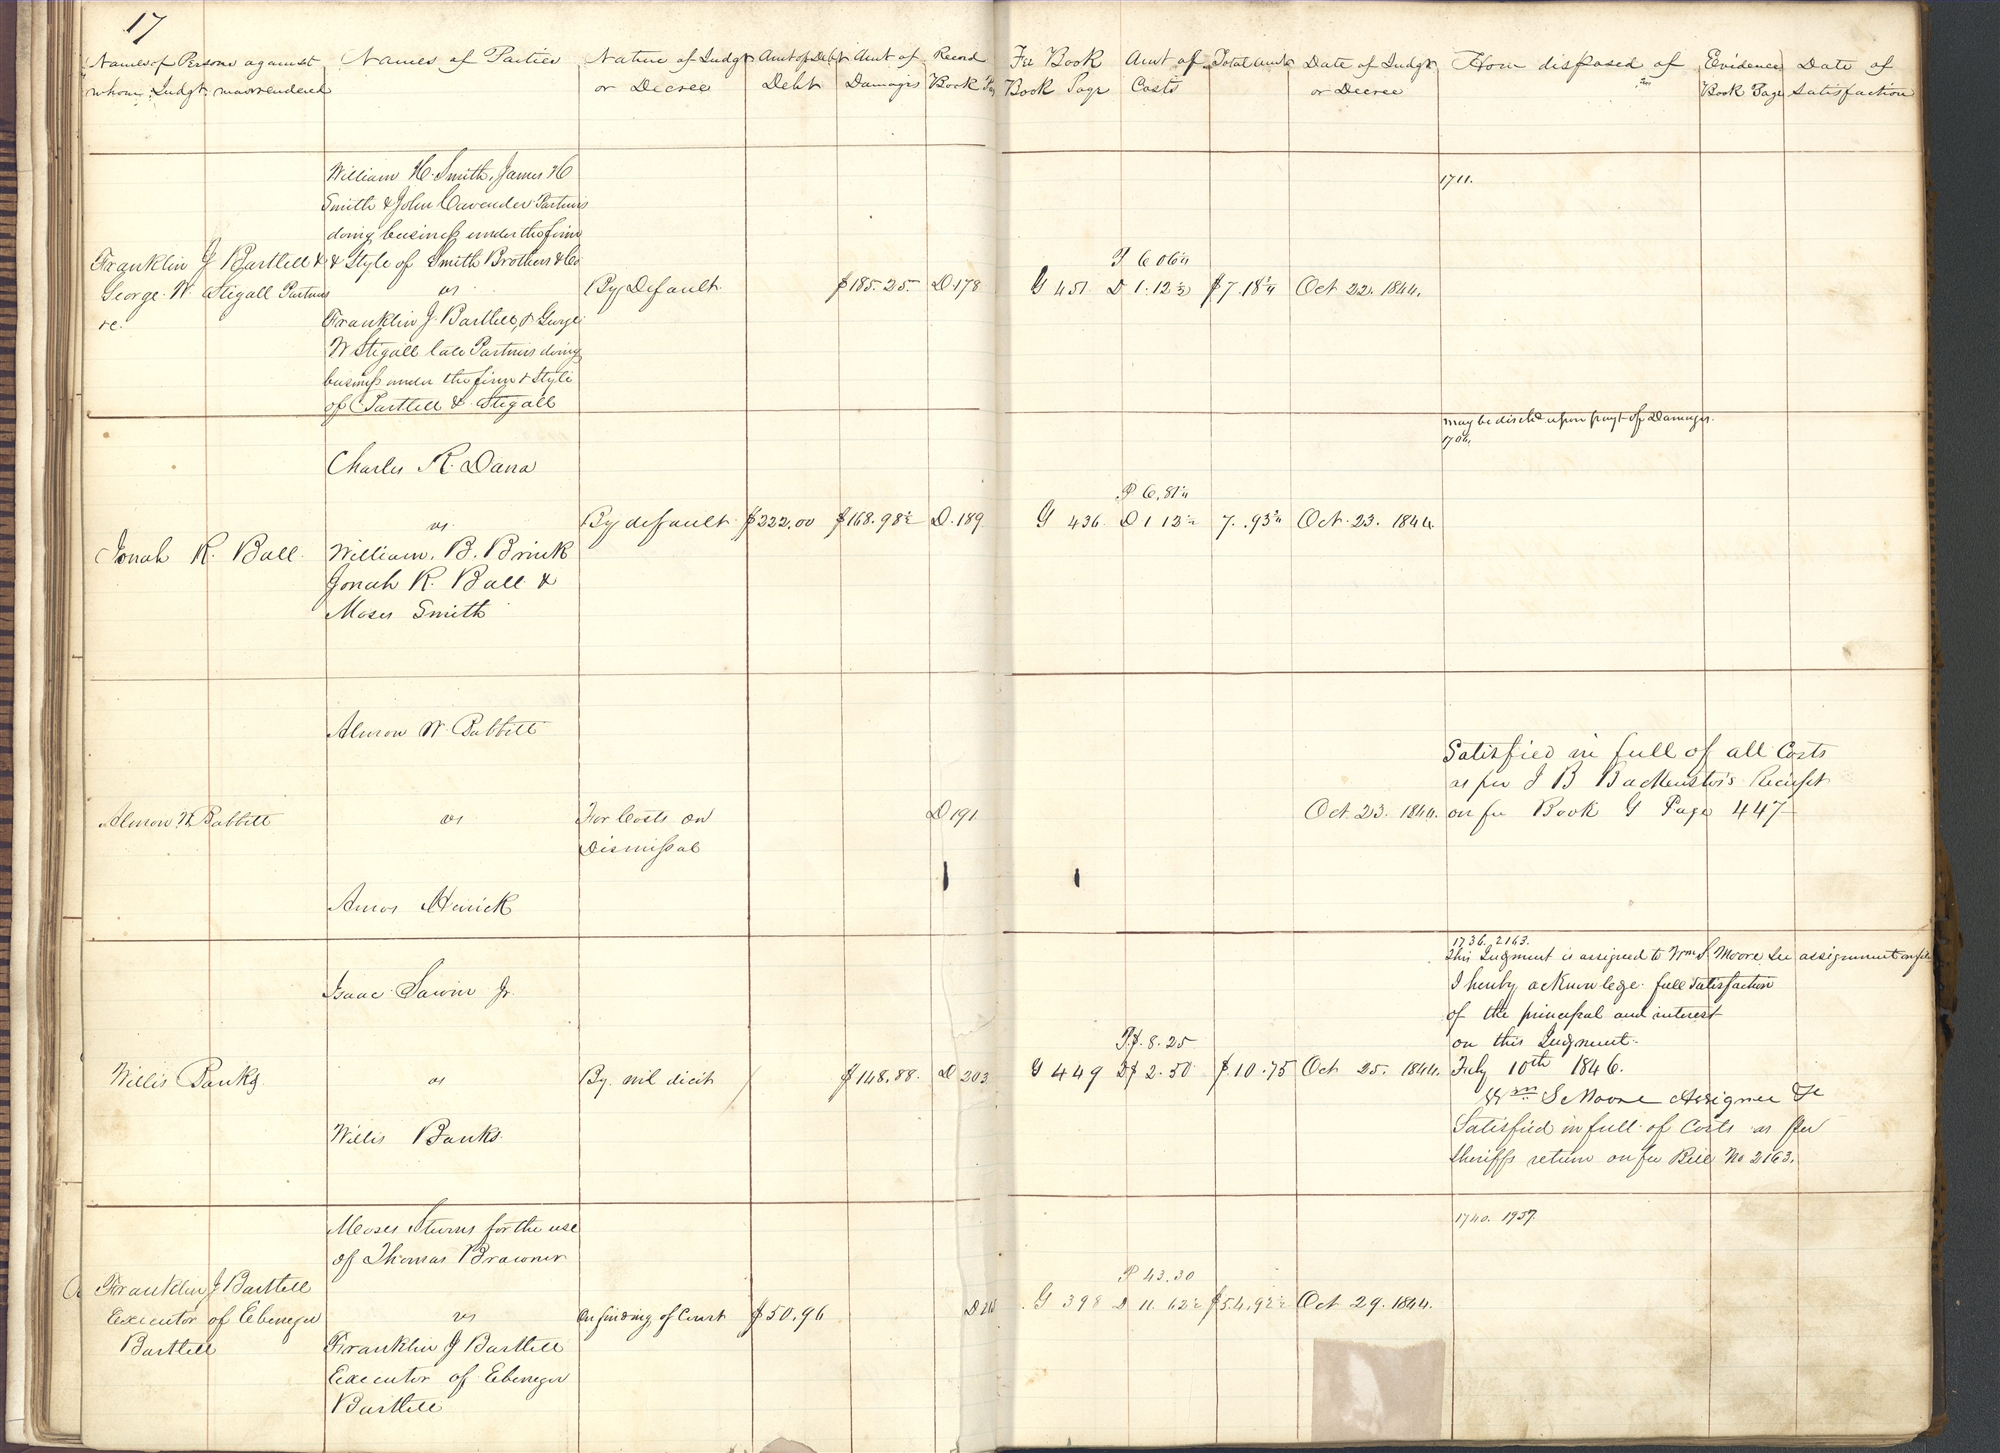 17
Names of Persons against
whom Judgt was rendered
Names of Parties
Nature of Judgt
or Decree
Amt of Debt
Debt
Amt of
Damages
Record
Book Pag
Fee Book
Book Page
Amt of
Costs
Total Amt
Date of Judgt
or Decree
How disposed of
Evidence
Book Page
Date of
Satisfaction
Franklin J Bartlett &
George W. Stigall Partners
&c.
William H. Smith, James H
Smith & John Cavender Partners
doing business under the firm
& Style of Smith Brothers & Co
vs
Franklin J. Bartlett, & George
W Stigall late Partners doing
business under the firm & Style
of Bartlett & Stigall
By Default.
$185.25.
D.178
G 451
P 6 06¼
D 1.12½
$7.18¾
Oct 22. 1844.
1711.
Jonah R. Ball.
Charles R. Dana
vs
William. B. Brink
Jonah R. Ball &
Moses Smith
By default
$222.00
$168.98½
D.189.
G 436.
P 6.81¼
D 1 12½
7.93¾
Oct. 23. 1844.
may be dischd upon payt of Damages.
1706.
Almon W Babbitt
Almon W. Babbitt
vs
Amos Herrick
For Costs on
Dismissal
D 191
Oct. 23. 1844.
Satisfied in full of all Costs
as per J B Backenstos's Receipt
on fee Book G Page 447
Willis Banks
Isaac Sawin Jr.
vs
Willis Banks.
By nil dicit
$148.88.
D 203
G 449
P$. 8.25
D$ 2.50
$10.75
Oct 25. 1844.
1736. 2163.
This Judgment is assigned to Wm S Moore See assignment on file
I hereby acknowledge full satisfaction
of the principal and interest
on this Judgment.
July 10th 1846.
Wm S Moore Assignee &c
Satisfied in full of Costs as per
Sheriffs return on fee Bill No 2163.
Franklin J Bartlett
Executor of Ebenezer
Bartlett
Moses Sturns for the use
of Thomas Brawner
vs
Franklin J Bartlett
Executor of Ebenezer
Bartlett
On finding of Court
$50.96
D
G 398
P 43.30
D 11.62½
$54.92½
Oct 29. 1844.
1740. 1957.